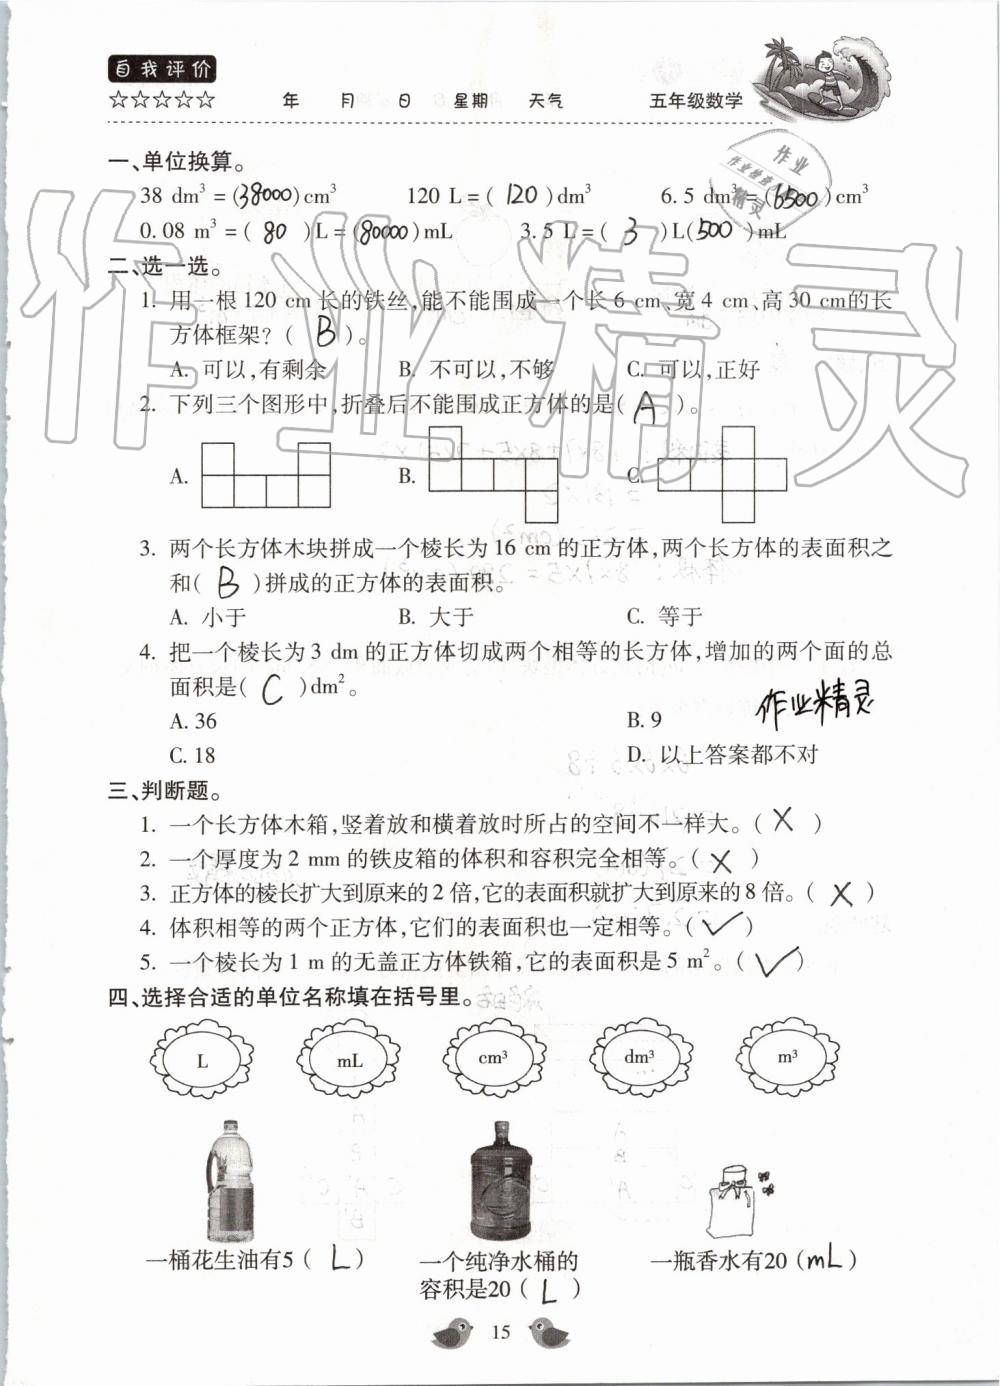 自我评价
☆☆☆☆☆ 年 月 日 星期 天气 五年级数学
作业
作业检查
精灵
一、单位换算。
38 dm³=(38000)cm³ 120 L=( 120 )dm³ 6.5 dm³=(6500)cm³
0.08 m³=( 80 )L=(80000)mL 3.5 L=( 3 )L(500 )mL
二、选一选。
1. 用一根120 cm长的铁丝,能不能围成一个长6 cm、宽4 cm、高30 cm的长
方体框架?( B )。
A. 可以,有剩余 B. 不可以,不够 C. 可以,正好
2. 下列三个图形中,折叠后不能围成正方体的是( A )。
A. B. C.
3. 两个长方体木块拼成一个棱长为16 cm的正方体,两个长方体的表面积之
和( B )拼成的正方体的表面积。
A. 小于 B. 大于 C. 等于
4. 把一个棱长为3 dm的正方体切成两个相等的长方体,增加的两个面的总
面积是( C )dm²。
A. 36 B. 9
作业精灵
C. 18 D. 以上答案都不对
三、判断题。
1. 一个长方体木箱,竖着放和横着放时所占的空间不一样大。( X )
2. 一个厚度为2 mm的铁皮箱的体积和容积完全相等。( X )
3. 正方体的棱长扩大到原来的2倍,它的表面积就扩大到原来的8倍。( X )
4. 体积相等的两个正方体,它们的表面积也一定相等。( ✓ )
5. 一个棱长为1 m的无盖正方体铁箱,它的表面积是5 m²。( ✓ )
四、选择合适的单位名称填在括号里。
L mL cm³ dm³ m³
一桶花生油有5( L ) 一个纯净水桶的 一瓶香水有20(mL)
容积是20( L )
15
作业精灵